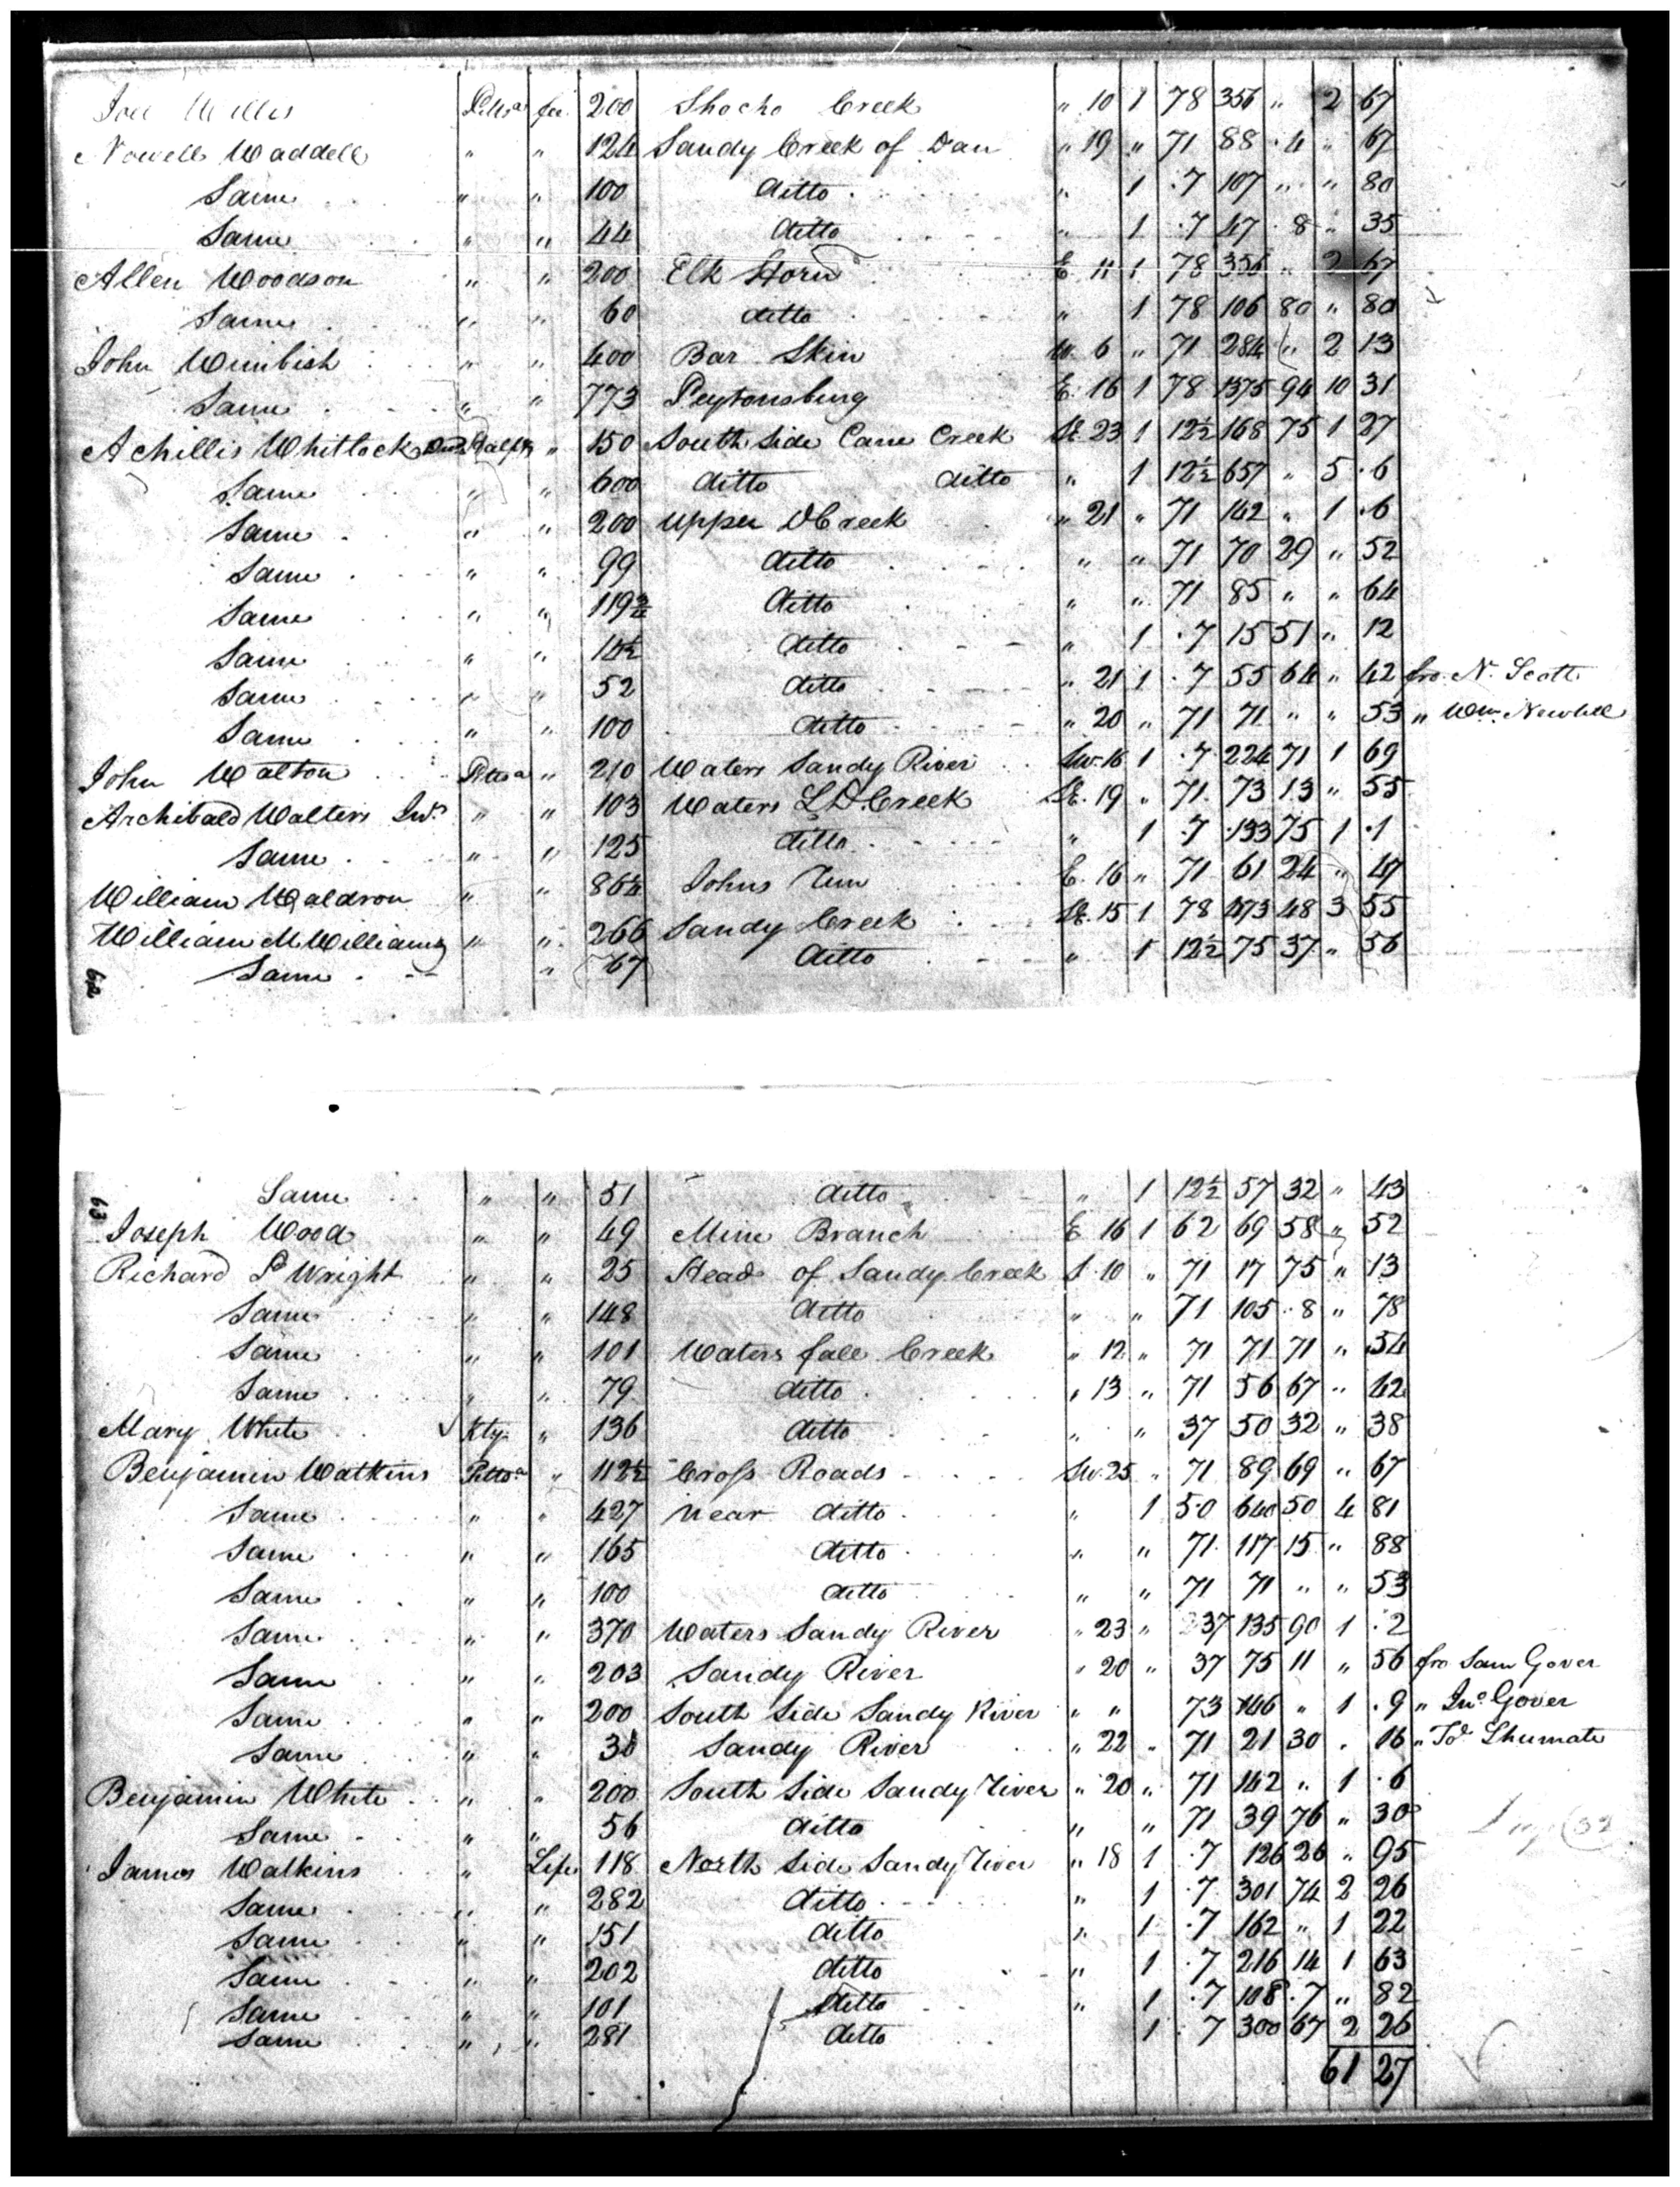 Joel Willis Pittsa fee 200 Shocho Creek " 10 1 78 356 " 2 67
Nowell Waddell " " 124 Sandy Creek of Dan " 19 " 71 88 .4 " 67
Same " " 100 ditto " 1 .7 107 " " 80
Same " " 44 ditto " 1 .7 47 .8 " 35
Allen Woodson " " 200 Elk Horn E 11 1 78 356 " 2 67
Same " " 60 ditto " 1 78 106 80 " 80
John Wimbish " " 400 Bar Skin W. 6 " 71 284 " 2 13
Same " " 773 Peytonsburg E. 16 1 78 1375 94 10 31
Achillis Whitlock Halifx " 150 South Side Cane Creek SE. 23 1 12½ 168 75 1 27
Same " " 600 ditto ditto " 1 12½ 657 " 5 .6
Same " " 200 Upper D Creek " 21 " 71 142 " 1 .6
Same " " 99 ditto " " 71 70 29 " 52
Same " " 119¾ ditto " " 71 85 " " 64
Same " " 14½ ditto " 1 .7 15 51 " 12
Same " " 52 ditto " 21 1 .7 55 64 " 42 fro. N. Scott
Same " " 100 ditto " 20 " 71 71 " " 53 " Wm. Newbell
John Walton Pittsa " 210 Waters Sandy River SW. 16 1 .7 224 71 1 69
Archibald Walters Snr. " " 103 Waters L D. Creek SE. 19 " 71 73 13 " 55
Same " " 125 ditto " 1 .7 133 75 1 .1
William Waldron " " 86¼ Johns Run E. 16 " 71 61 24 " 47
William M Williams " " 266 Sandy Creek SE. 15 1 78 473 48 3 55
Same " 67 ditto " 1 12½ 75 37 " 56
62
63
Same " " 51 ditto " 1 12½ 57 32 " 43
Joseph Wood " " 49 Mine Branch E 16 1 62 69 58 " 52
Richard P Wright " " 25 Head of Sandy Creek S. 10 " 71 17 75 " 13
Same " " 148 ditto " " 71 105 .8 " 78
Same " " 101 Waters fall Creek " 12 " 71 71 71 " 54
Same " " 79 ditto " 13 " 71 56 67 " 42
Mary White Kty. " 136 ditto " " 37 50 32 " 38
Benjamin Watkins Pittsa " 112½ Cross Roads SW. 25 " 71 89 69 " 67
Same " " 427 near ditto " 1 50 640 50 4 81
Same " " 165 ditto " " 71 117 15 " 88
Same " " 100 ditto " " 71 71 " " 53
Same " " 370 Waters Sandy River " 23 " 37 135 90 1 .2
Same " " 203 Sandy River " 20 " 37 75 11 " 56 fro Sam Gover
Same " " 200 South Side Sandy River " " 73 146 " 1 .9 " Jno. Gover
Same " " 30 Sandy River " 22 " 71 21 30 " 16 " To. Shumate
Benjamin White " " 200 South Side Sandy River " 20 " 71 142 " 1 .6
Same " " 56 ditto " " 71 39 76 " 30
James Watkins " Life 118 North Side Sandy River " 18 1 .7 126 26 " 95
Same " " 282 ditto " 1 .7 301 74 2 26
Same " " 151 ditto " 1 .7 162 " 1 22
Same " " 202 ditto " 1 .7 216 14 1 63
Same " " 101 ditto " 1 .7 108 .7 " 82
Same " " 281 ditto 1 .7 300 67 2 26
61 27